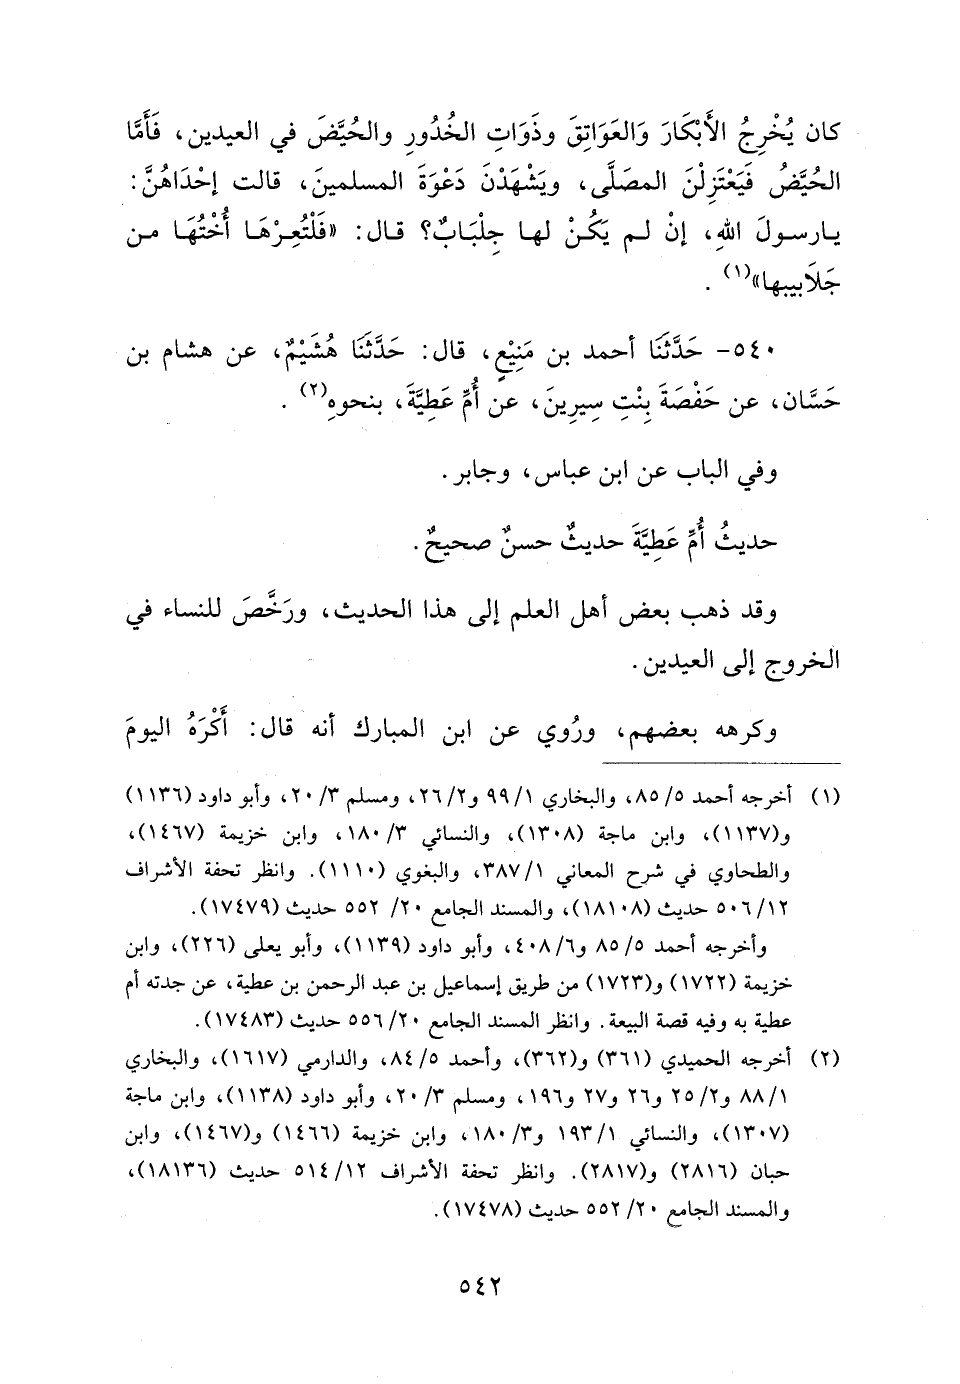 كان يُخْرِجُ الأَبْكَارَ وَالعَوَاتِقَ وذَوَاتِ الخُدُورِ والحُيَّضَ في العيدين، فَأَمَّا
الحُيَّضُ فَيَعْتَزِلْنَ المصَلَّى، ويَشْهَدْنَ دَعْوَةَ المسلمينَ، قالت إحْدَاهُنَّ:
يارسولَ اللهِ، إنْ لم يَكُنْ لها جِلْبَابٌ؟ قال: «فَلْتُعِرْهَا أُخْتُهَا من
جَلَابيبها»(١) .
٥٤٠- حَدَّثَنَا أحمد بن مَنِيْعٍ، قال: حَدَّثَنَا هُشَيْمٌ، عن هشام بن
حَسَّان، عن حَفْصَةَ بِنْتِ سِيرِينَ، عن أُمِّ عَطِيَّةَ، بنحوهِ(٢) .
وفي الباب عن ابن عباس، وجابر.
حديثُ أُمِّ عَطِيَّةَ حديثٌ حسنٌ صحيحٌ.
وقد ذهب بعض أهل العلم إلى هذا الحديث، ورَخَّصَ للنساء في
الخروج إلى العيدين.
وكرهه بعضهم، ورُوي عن ابن المبارك أنه قال: أَكْرَهُ اليومَ
(١) أخرجه أحمد ٥/ ٨٥، والبخاري ١/ ٩٩ و٢/ ٢٦، ومسلم ٣/ ٢٠، وأبو داود (١١٣٦)
و(١١٣٧)، وابن ماجة (١٣٠٨)، والنسائي ٣/ ١٨٠، وابن خزيمة (١٤٦٧)،
والطحاوي في شرح المعاني ١/ ٣٨٧، والبغوي (١١١٠). وانظر تحفة الأشراف
١٢/ ٥٠٦ حديث (١٨١٠٨)، والمسند الجامع ٢٠/ ٥٥٢ حديث (١٧٤٧٩).
وأخرجه أحمد ٥/ ٨٥ و٦/ ٤٠٨، وأبو داود (١١٣٩)، وأبو يعلى (٢٢٦)، وابن
خزيمة (١٧٢٢) و(١٧٢٣) من طريق إسماعيل بن عبد الرحمن بن عطية، عن جدته أم
عطية به وفيه قصة البيعة. وانظر المسند الجامع ٢٠/ ٥٥٦ حديث (١٧٤٨٣).
(٢) أخرجه الحميدي (٣٦١) و(٣٦٢)، وأحمد ٥/ ٨٤، والدارمي (١٦١٧)، والبخاري
١/ ٨٨ و٢/ ٢٥ و٢٦ و٢٧ و١٩٦، ومسلم ٣/ ٢٠، وأبو داود (١١٣٨)، وابن ماجة
(١٣٠٧)، والنسائي ١/ ١٩٣ و٣/ ١٨٠، وابن خزيمة (١٤٦٦) و(١٤٦٧)، وابن
حبان (٢٨١٦) و(٢٨١٧). وانظر تحفة الأشراف ١٢/ ٥١٤ حديث (١٨١٣٦)،
والمسند الجامع ٢٠/ ٥٥٢ حديث (١٧٤٧٨).
٥٤٢